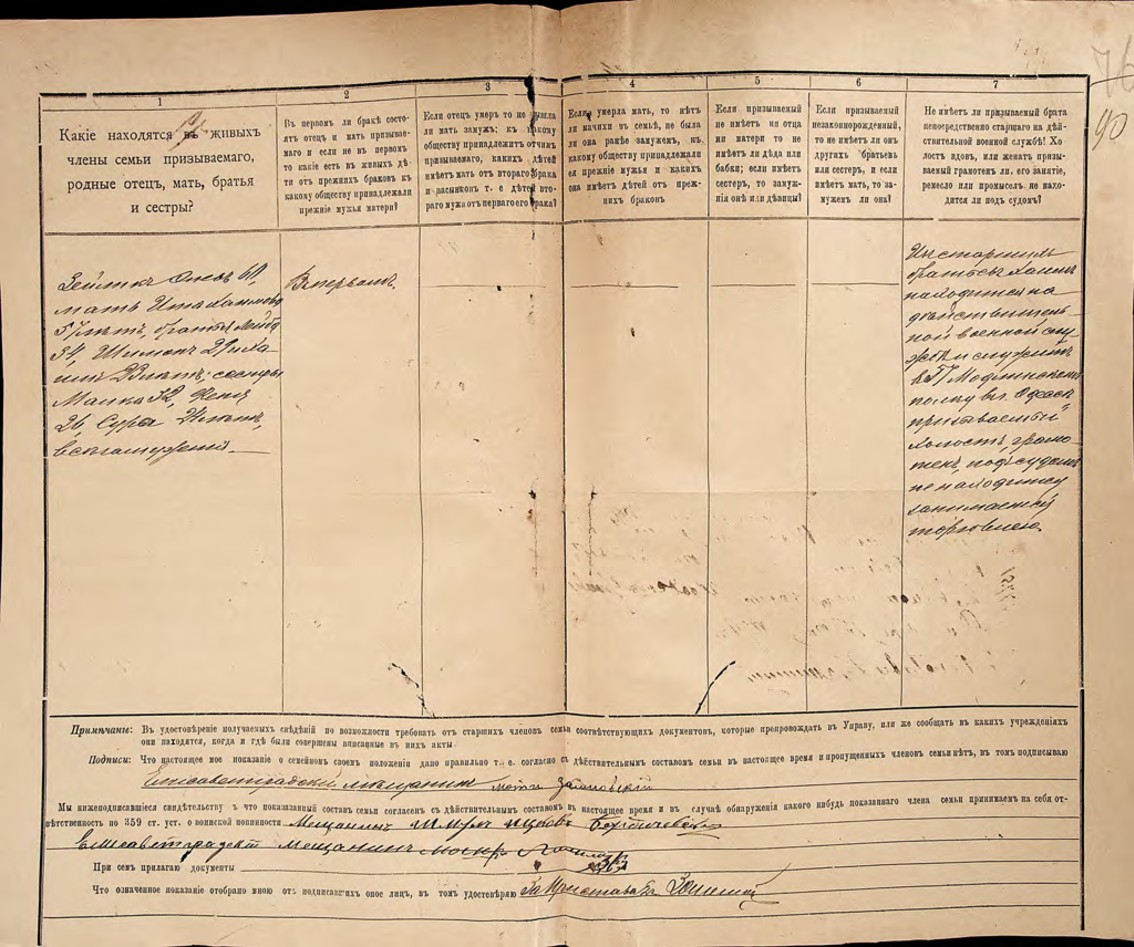 76
90
1
2
3
4
5
6
7
Какіе находятся въ живыхъ
члены семьи призываемаго,
родные отецъ, мать, братья
и сестры?
Въ первомъ ли бракѣ состо-
ятъ отецъ и мать призывае-
маго и если не въ первомъ
то какіе есть въ живыхъ дѣ-
ти отъ прежнихъ браковъ къ
какому обществу принадлежали
прежніе мужья матери?
Если отецъ умеръ то не вышла
ли мать замужъ; къ какому
обществу принадлежитъ отчимъ
призываемаго, какихъ дѣтей
имѣетъ мать отъ втораго брака
и пасынковъ т. е. дѣтей вто-
раго мужа отъ перваго его брака?
Если умерла мать, то нѣтъ
ли мачихи въ семьѣ, не была
ли она ранѣе замужемъ, къ
какому обществу принадлежали
ея прежніе мужья и какихъ
она имѣетъ дѣтей отъ преж-
нихъ браковъ
Если призываемый
не имѣетъ ни отца
ни матери то не
имѣетъ ли дѣда или
бабки; если имѣетъ
сестеръ, то замуж-
нія онѣ или дѣвицы?
Если призываемый
незаконорожденный,
то не имѣетъ ли онъ
другихъ братьевъ
или сестеръ, и если
имѣетъ мать, то за-
мужемъ ли она?
Не имѣетъ ли призываемый брата
непосредственно старшаго на дѣй-
ствительной военной службѣ? Хо-
лостъ вдовъ, или женатъ призы-
ваемый грамотенъ ли, его занятіе,
ремесло или промыселъ не нахо-
дится ли подъ судомъ?
60,
мать Ита
57 лѣтъ, братья
34, 29 и Ха-
имъ лѣтъ, сестры
Малка 32,
26, Сура лѣтъ,
Въ первомъ.
старшимъ
братъ Хаимъ
находится на
дѣйствитель-
ной военной слу-
жбѣ и служитъ
въ 57 Модлинскомъ
полку въ г. Одессѣ
призываемый
холостъ, грамо-
тенъ, подъ судомъ
не находится
занимается
торговлею.
Примѣчаніе: Въ удостовѣреніе получаемыхъ свѣдѣній по возможности требовать отъ старшихъ членовъ семьи соотвѣтствующихъ документовъ, которые препровождать въ Управу, или же сообщать въ какихъ учрежденіяхъ
они находятся, когда и гдѣ были совершены вписанные въ нихъ акты.
Подписи: Что настоящее мое показаніе о семейномъ своемъ положеніи дано правильно т. е. согласно съ дѣйствительнымъ составомъ семьи въ настоящее время и пропущенныхъ членовъ семьи нѣтъ, въ томъ подписываю
Елисаветградскій мѣщанинъ
Мы нижеподписавшіеся свидѣтельствуемъ что показанный составъ семьи согласенъ съ дѣйствительнымъ составомъ въ настоящее время и въ случаѣ обнаруженія какого нибудь показаннаго члена семьи принимаемъ на себя от-
вѣтственность по 359 ст. уст. о воинской повинности Мещанинъ Шмулъ Ицковъ Бердичевскій
Елисаветградскій мещанинъ
При семъ прилагаю документы
Что означенное показаніе отобрано мною отъ подписавшихъ оное лицъ, въ томъ удостовѣряю За Пристава